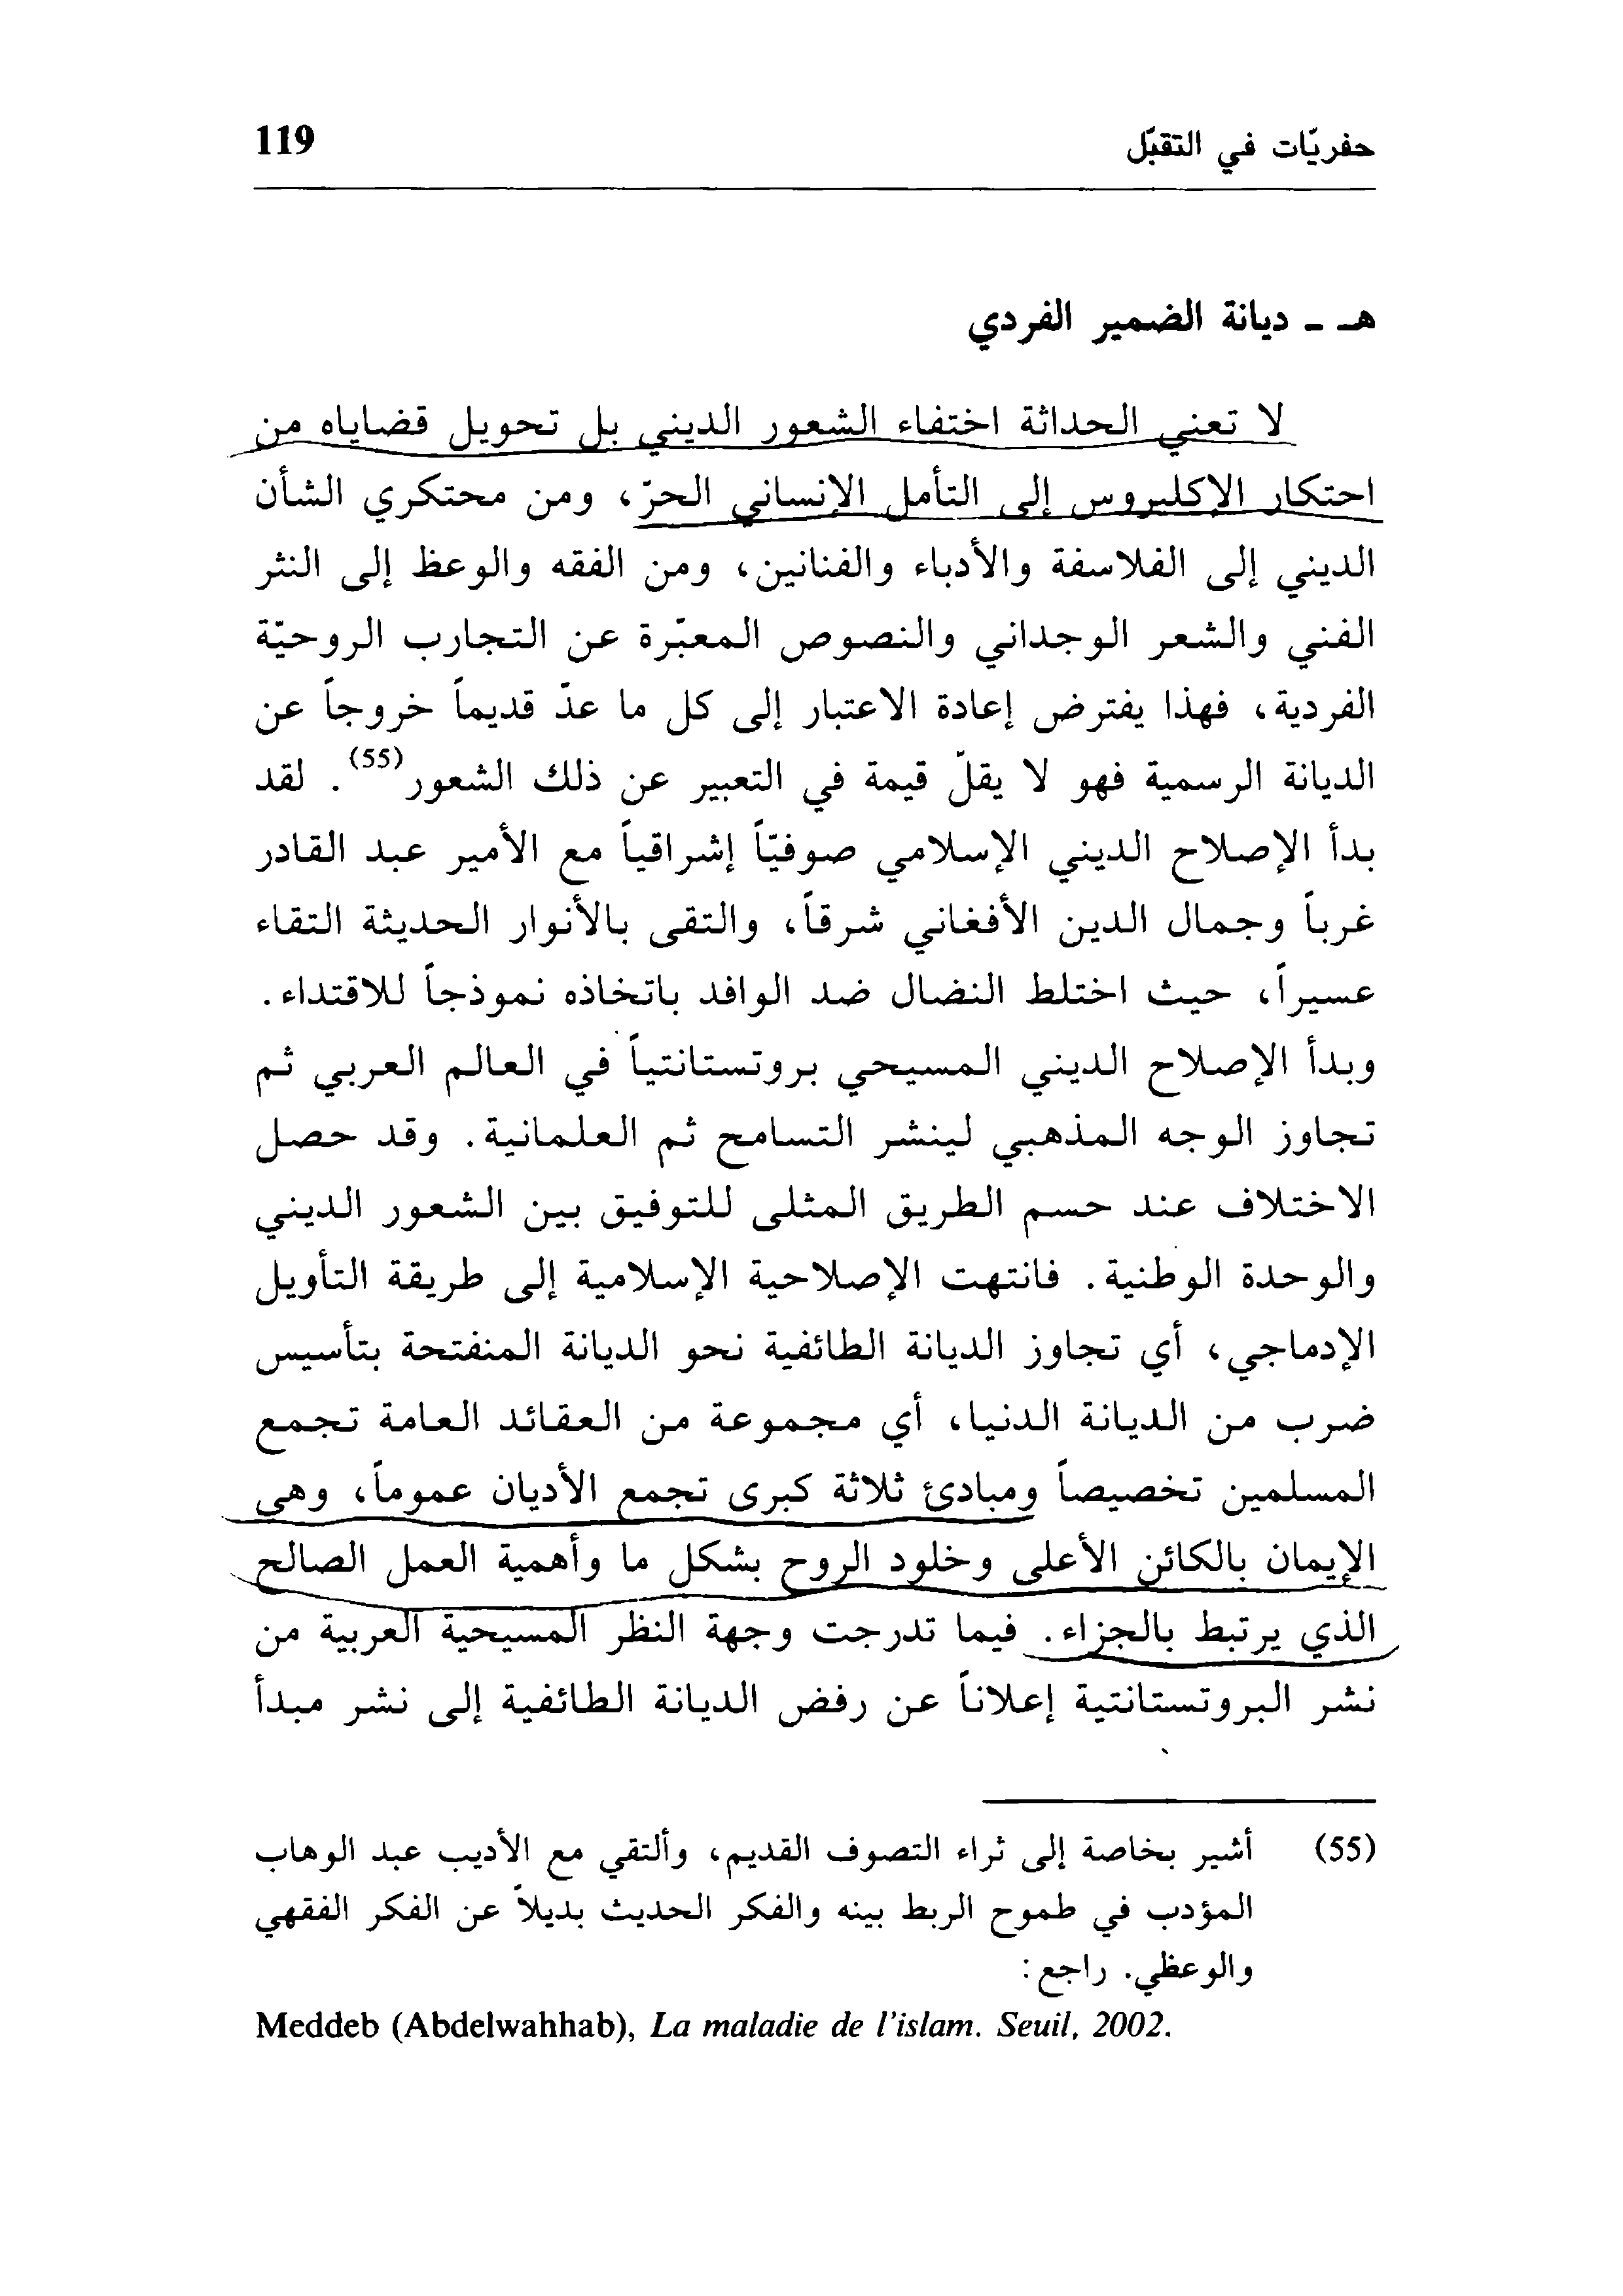 حفريّات في التقبّل 119
هـ - ديانة الضمير الفردي
لا تعني الحداثة اختفاء الشعور الديني بل تحويل قضاياه من
احتكار الإكليروس إلى التأمل الإنساني الحرّ، ومن محتكري الشأن
الديني إلى الفلاسفة والأدباء والفنانين، ومن الفقه والوعظ إلى النثر
الفني والشعر الوجداني والنصوص المعبّرة عن التجارب الروحيّة
الفردية، فهذا يفترض إعادة الاعتبار إلى كل ما عدّ قديماً خروجاً عن
الديانة الرسمية فهو لا يقلّ قيمة في التعبير عن ذلك الشعور(55). لقد
بدأ الإصلاح الديني الإسلامي صوفيّاً إشراقياً مع الأمير عبد القادر
غرباً وجمال الدين الأفغاني شرقاً، والتقى بالأنوار الحديثة التقاء
عسيراً، حيث اختلط النضال ضد الوافد باتخاذه نموذجاً للاقتداء.
وبدأ الإصلاح الديني المسيحي بروتستانتياً في العالم العربي ثم
تجاوز الوجه المذهبي لينشر التسامح ثم العلمانية. وقد حصل
الاختلاف عند حسم الطريق المثلى للتوفيق بين الشعور الديني
والوحدة الوطنية. فانتهت الإصلاحية الإسلامية إلى طريقة التأويل
الإدماجي، أي تجاوز الديانة الطائفية نحو الديانة المنفتحة بتأسيس
ضرب من الديانة الدنيا، أي مجموعة من العقائد العامة تجمع
المسلمين تخصيصاً ومبادئ ثلاثة كبرى تجمع الأديان عموماً، وهي
الإيمان بالكائن الأعلى وخلود الروح بشكل ما وأهمية العمل الصالح
الذي يرتبط بالجزاء. فيما تدرجت وجهة النظر المسيحية العربية من
نشر البروتستانتية إعلاناً عن رفض الديانة الطائفية إلى نشر مبدأ
(55) أشير بخاصة إلى ثراء التصوف القديم، وألتقي مع الأديب عبد الوهاب
المؤدب في طموح الربط بينه والفكر الحديث بديلاً عن الفكر الفقهي
والوعظي. راجع:
Meddeb (Abdelwahhab), La maladie de l'islam. Seuil, 2002.